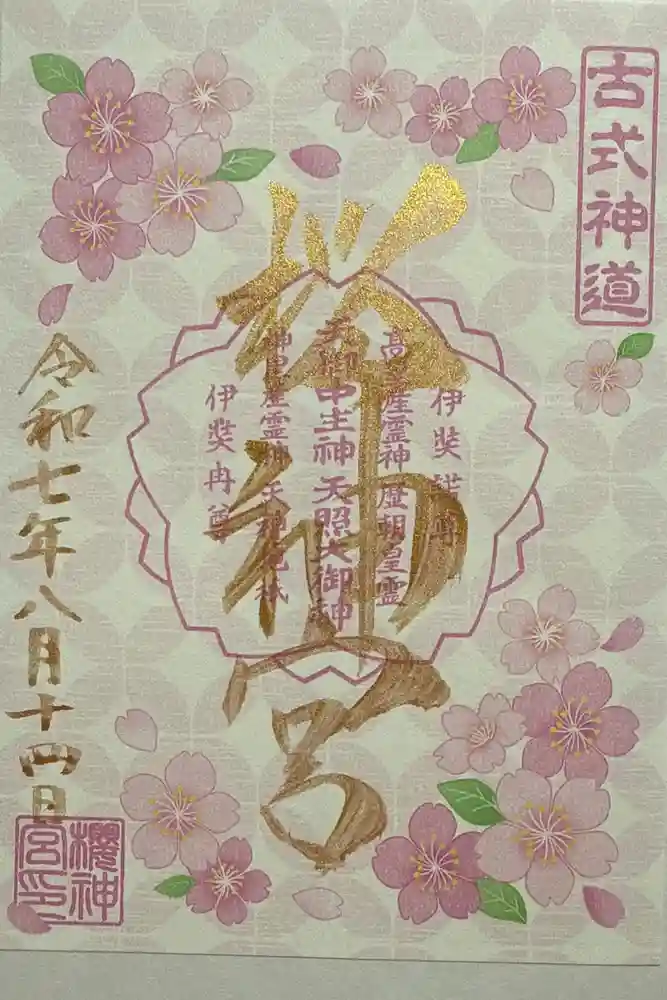 古式神道
桜神宮
伊奘諾尊
高皇産霊神 歴朝皇霊
天御中主神 天照大御神
神皇産霊神 天神地祇
伊奘冉尊
令和七年八月十四日
櫻神
宮印